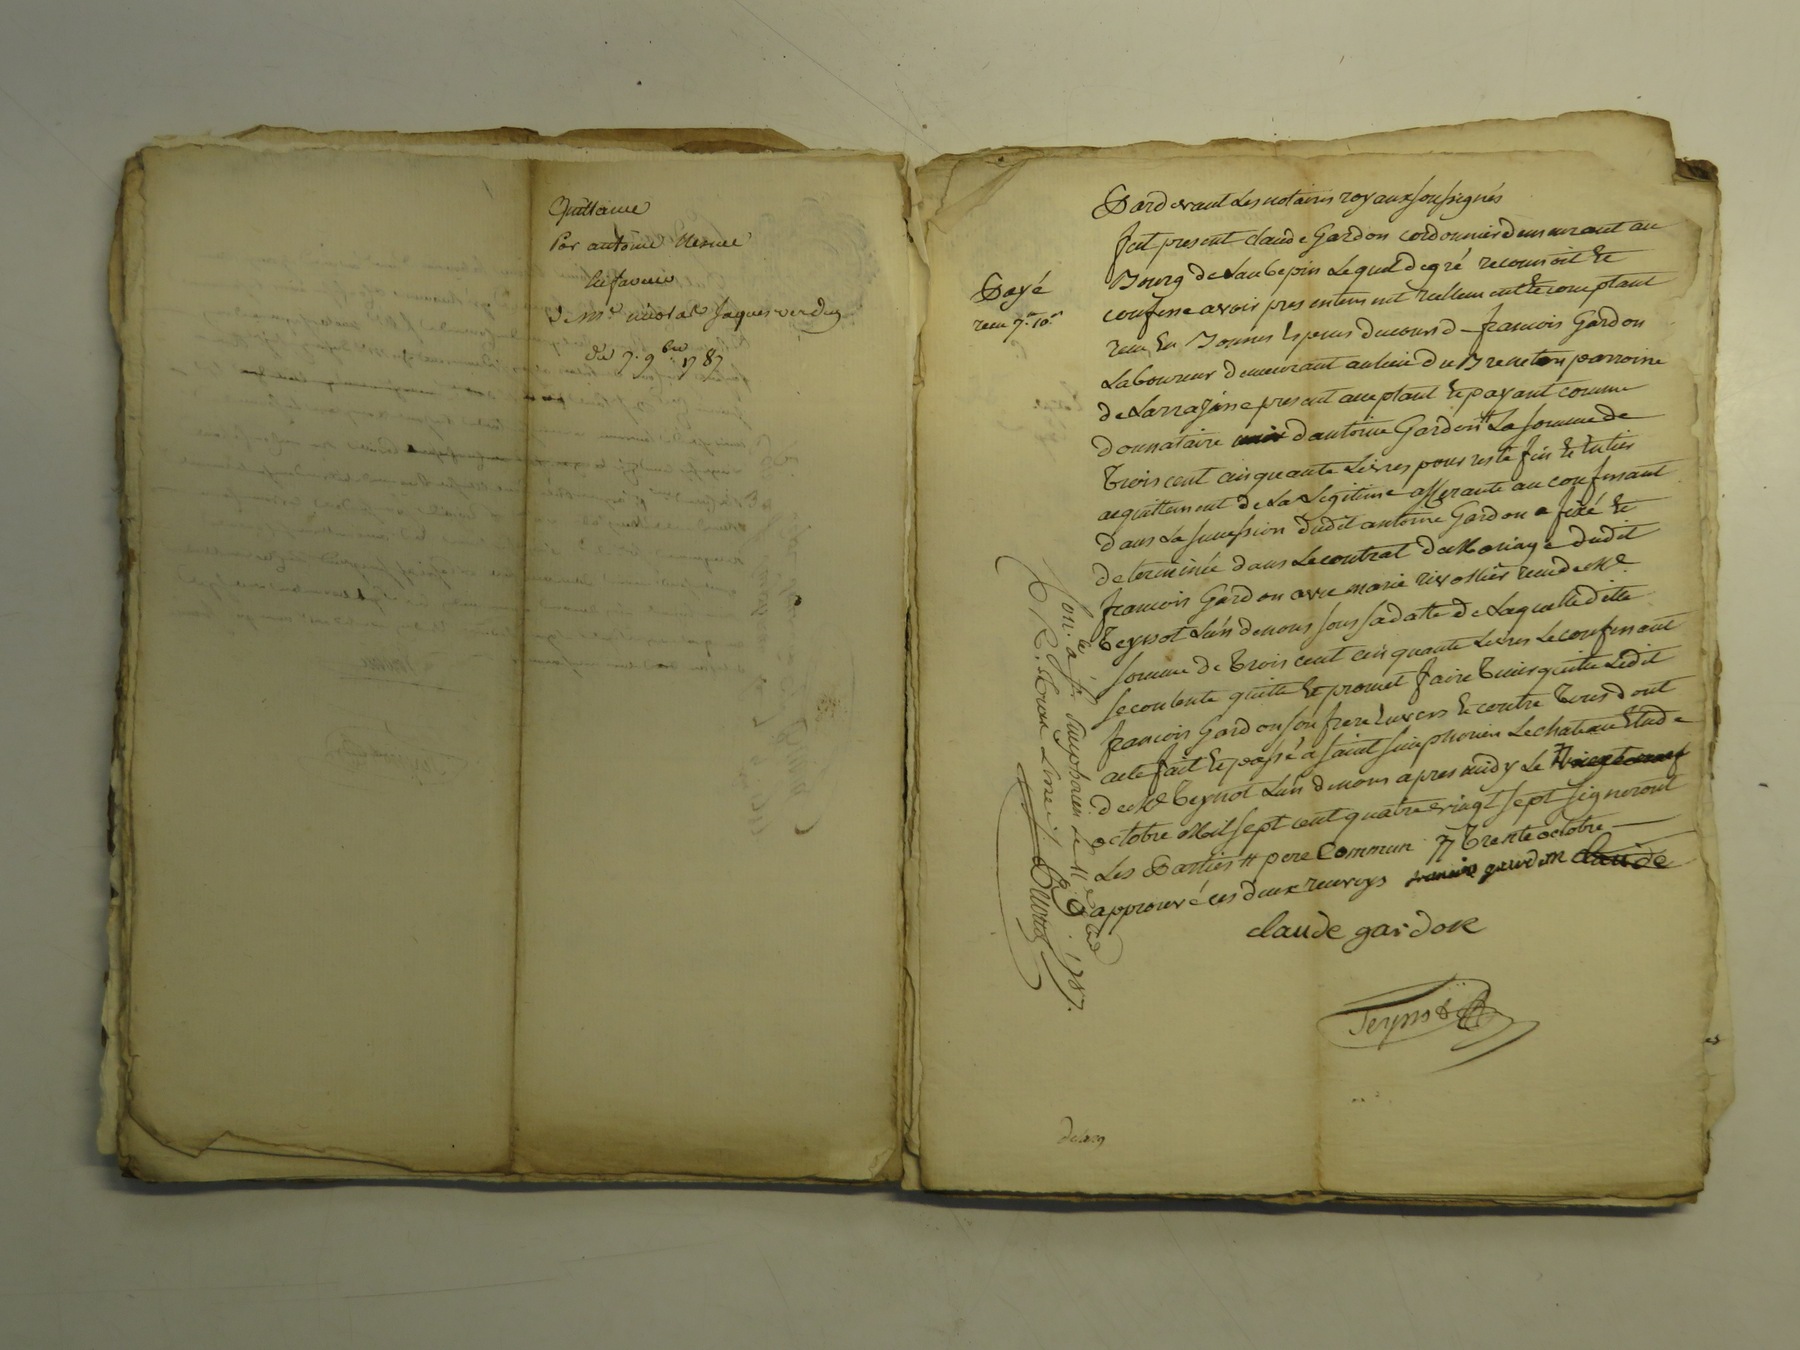 Quittance
Par antoine
En faveur
de Me. nicolas Jaques verdun
du 7. 9bre 1787
Pardevant Les notaires royaux soussignés
fut present claude Gardon cordonnier demeurant au
Bourg de Laubepin Lequel de gré reconnoit Et
confesse avoir presentement réellement Et comptant
Payé
receu 7.tt 10.s
receu En Bonnes Especes du cours de francois Gardon
Laboureur demeurant au lieu du Breneton parroisse
de Larrajasse present acceptant Et payant comme
donnataire d'antoine Gardon # La somme de
trois cent cinquante Livres pour reste fin Et entier
acquittement de La Legitime afferante au confessant
dans La succession dudit antoine Gardon a fixé Et
determinée dans Le contrat de Mariage dudit
francois Gardon avec marie rivollier receu de Me
teynot L'un de nous sous sa datte de Laquelle ditte
somme de trois cent cinquante Livres Le confessant
se contente quitte Et promet faire tenir quitte Ledit
francois Gardon son frere Envers Et contre tous dont
acte fait Et passé a saint simphorien Le chateau Etude
de Me teynot L'un de nous apres midy Le
octobre Mil sept cent quatre vingt sept signeront
Les Parties # pere Commun # trente octobre
approuvé ces deux renvoys francois gardon claude
claude gardon
Teynot
Con.lé a st. Simphorien Le 11. 9bre 1787.
R. trois Livres